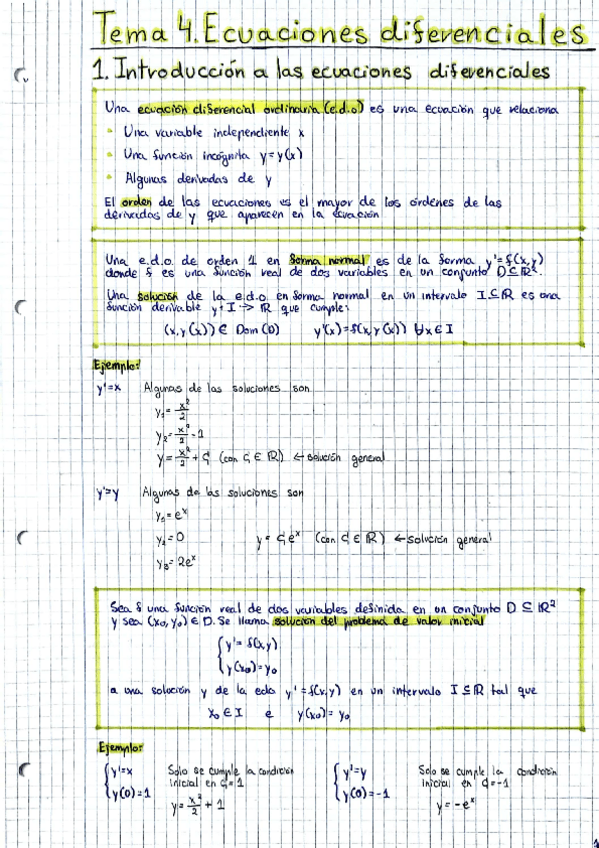 Tema 4. Ecuaciones diferenciales
1. Introducción a las ecuaciones diferenciales
Una ecuación diferencial ordinaria (e.d.o) es una ecuación que relaciona
• Una variable independiente x
• Una función incógnita y=y(x)
• Algunas derivadas de y
El orden de las ecuaciones es el mayor de los órdenes de las
derivadas de y que aparecen en la ecuación
Una e.d.o. de orden 1 en forma normal es de la forma y'=f(x,y)
donde f es una función real de dos variables en un conjunto D⊆ℝ².
Una solución de la e.d.o en forma normal en un intervalo I⊆ℝ es una
función derivable y: I → ℝ que cumple:
(x, y(x)) ∈ Dom(D) y'(x)=f(x,y(x)) ∀x∈I
Ejemplo:
y'=x Algunas de las soluciones son
y₁= x²/2
y₂= x²/2 -1
y= x²/2 + C (con C∈ℝ) ← solución general
y'=y Algunas de las soluciones son
y₁=eˣ
y₂=0 y=Ceˣ (con C∈ℝ) ← solución general
y₃=2eˣ
Sea f una función real de dos variables definida en un conjunto D ⊆ ℝ²
y sea (x₀, y₀) ∈ D. Se llama solución del problema de valor inicial
{ y'= f(x,y)
{ y(x₀)=y₀
a una solución y de la edo y'=f(x,y) en un intervalo I⊆ℝ tal que
x₀∈I e y(x₀)=y₀
Ejemplo:
{ y'=x Solo se cumple la condición { y'=y Solo se cumple la condición
{ y(0)=1 inicial en C=1 { y(0)=-1 inicial en C=-1
y= x²/2 + 1 y=-eˣ
1